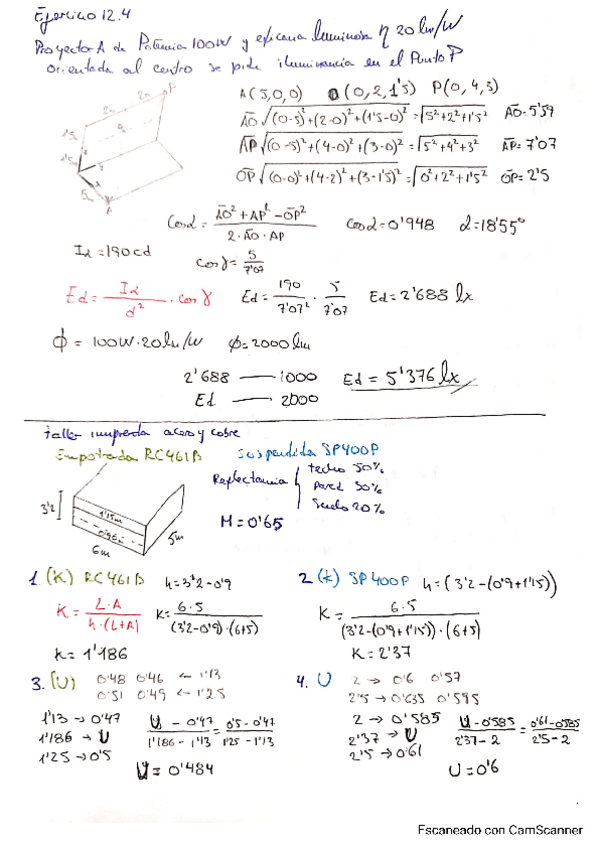 Ejercicio 12.4
Proyector A de Potencia 100W y eficacia luminosa η 20 lm/W
orientada al centro se pide iluminancia en el Punto P
A(5,0,0) O(0,2,1'5) P(0,4,3)
AO √(0-5)²+(2-0)²+(1'5-0)² = √5²+2²+1'5² AO=5'59
AP √(0-5)²+(4-0)²+(3-0)² = √5²+4²+3² AP=7'07
OP √(0-0)²+(4-2)²+(3-1'5)² = √0²+2²+1'5² OP=2'5
2m 2m P
1'5
1'5
5m
A
Cosα = AO²+AP²-OP² / 2·AO·AP Cosα=0'948 α=18'55°
Iα=190cd cosγ= 5/7'07
Ed = Iα/d² · cosγ Ed = 190/7'07² · 5/7'07 Ed=2'688 lx
ϕ = 100W·20lm/W ϕ=2000lm
2'688 — 1000 Ed = 5'376 lx
Ed — 2000
taller imprenta acero y cobre
Empotrada RC461B Suspendida SP400P
Reflectancia { techo 50%
pared 50%
Suelo 20%
M=0'65
3'2 1'15m 0'9 6m 5m
1 (K) RC461B h=3'2-0'9
K = L·A / h·(L+A) K= 6·5 / (3'2-0'9)·(6+5)
K=1'186
2 (K) SP400P h=(3'2-(0'9+1'15))
K = 6·5 / (3'2-(0'9+1'15))·(6+5)
K=2'37
3. (U) 0'48 0'46 ← 1'13
0'51 0'49 ← 1'25
1'13 → 0'47
1'186 → U
1'25 → 0'5
U - 0'47 / 1'186-1'13 = 0'5-0'47 / 1'25-1'13
U=0'484
4. U 2 → 0'6 0'57
2'5 → 0'635 0'595
2 → 0'585
2'37 → U
2'5 → 0'61
U-0'585 / 2'37-2 = 0'61-0'585 / 2'5-2
U=0'6
Escaneado con CamScanner